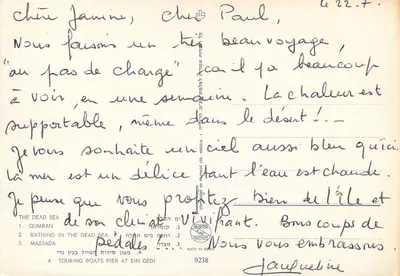 le 22.7.
Chère Janine, cher Paul,
Nous faisons un très beau voyage,
"au pas de charge" car il y a beaucoup
à voir, en une semaine. La chaleur est
supportable, même dans le désert! -
Je vous souhaite un ciel aussi bleu qu'ici
La mer est un délice tant l'eau est chaude.
Je pense que vous profitez bien de l'Ile et
de son climat vivifiant. Bons coups de
pédales
Nous vous embrassons.
Jacqueline
THE DEAD SEA
1. QUMRAN
2. BATHING IN THE DEAD SEA
3. MASSADA
4. TOURING BOATS PIER AT EIN GEDI
9238